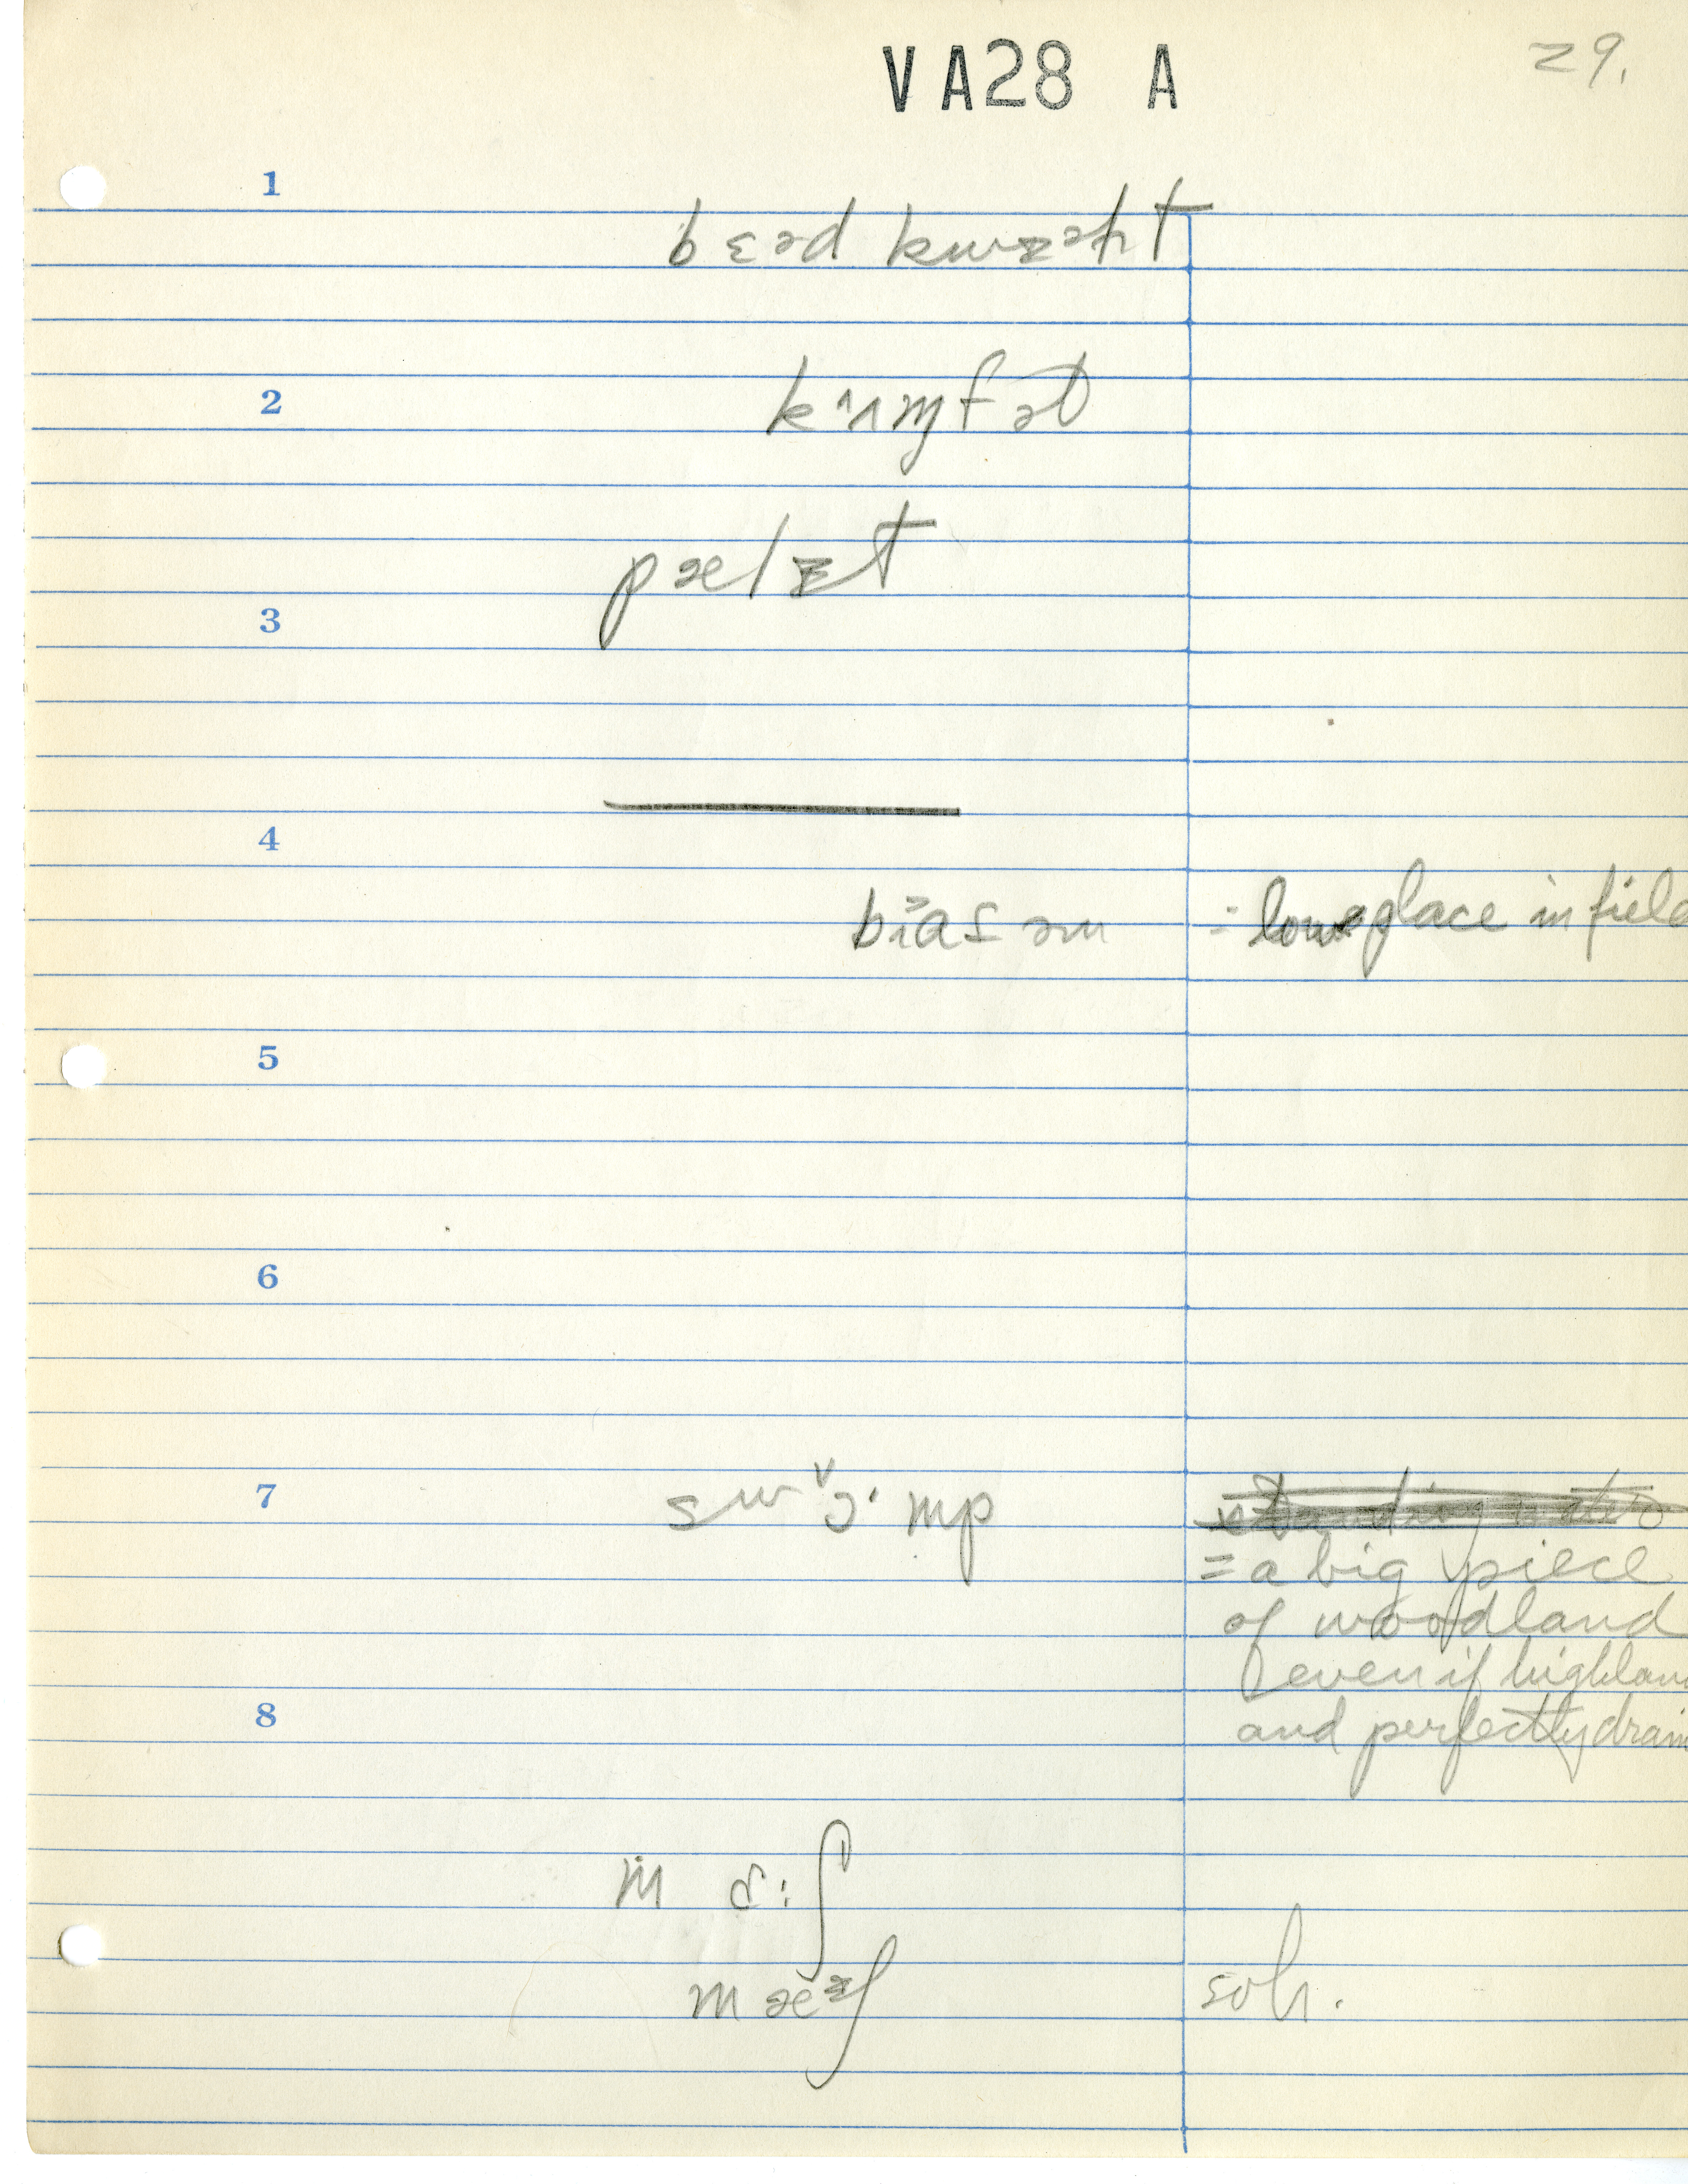 VA28 A
29.
1
bɛəd kwɪəɫt
2
kʌɱfət
pælɪt
3
4
bɪasəm = low place in field
5
6
7
swɔ·mp
= a big piece
of woodland
even if highlan
8
and perfectly drain
m ɑ:ʃ
mæᵊʃ soh.